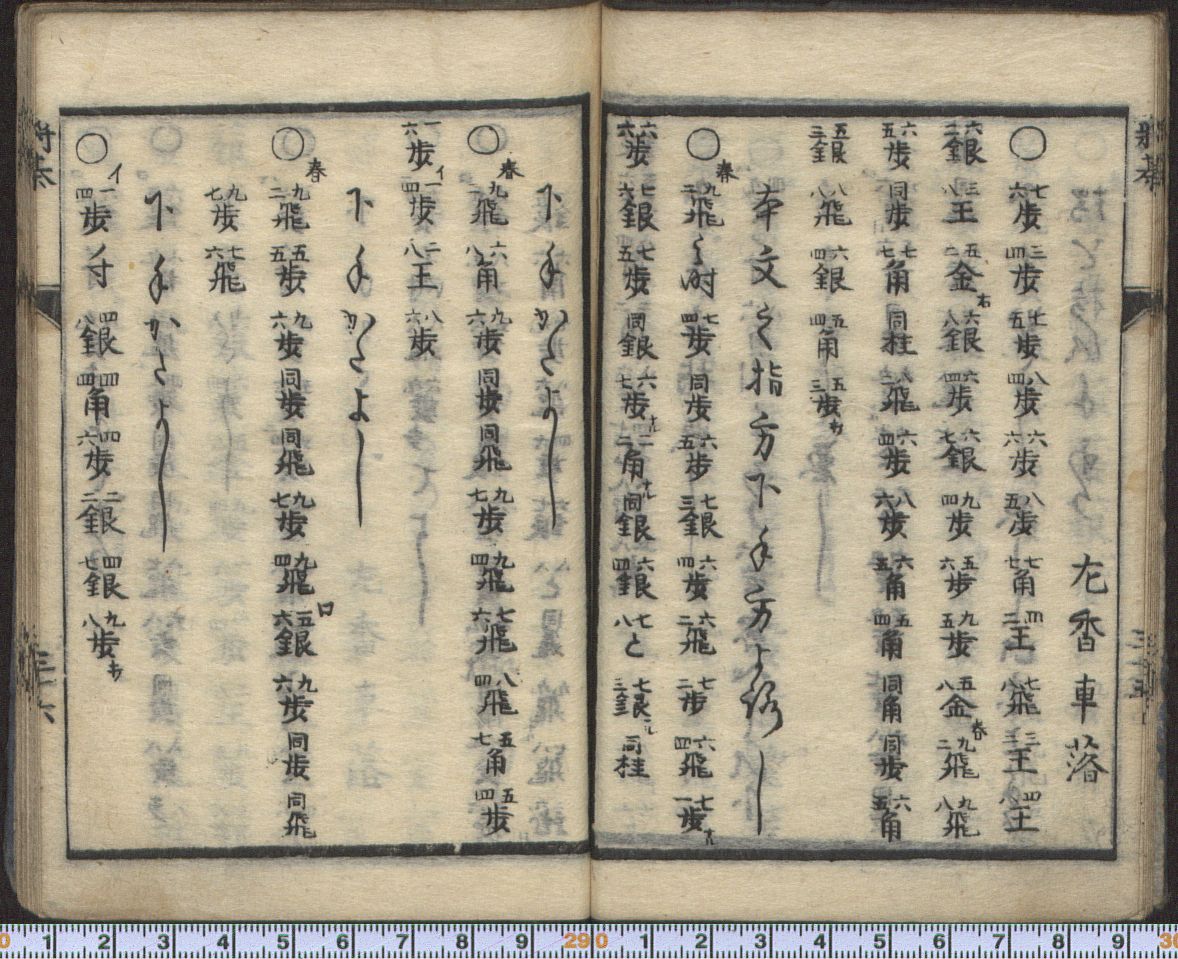 左香車落
○七六歩 三四歩 七五歩 八四歩 六六歩 八五歩 七七角 四二王 七八飛 三二王 四八王
六二銀 三八王 五二金右 六八銀 六四歩 六七銀 九四歩 五六歩 九五歩 五八金 春九二飛 九八飛
六五歩 同歩 七七角 同桂 八二飛 六四歩 八六歩 六五角 五四角 同角 同歩 六五角
五三銀 八八飛 六四銀 五四角 五三歩打
本文之指方下手方よろし
○春九二飛之時 七四歩 同歩 六五歩 七三銀 六四歩 六二飛 七二歩 六四飛 七一歩ナル
六六歩 七六銀 七五歩 同銀 六七歩ナル 二二角ナル 同銀 六四銀 七八と 七三銀ナル 同桂
下手かたよし
○春九二飛 六八角 九六歩 同歩 同飛 九七歩 九四飛 七六飛 八四飛 五七角 五四歩
一六歩 イ一四歩 二八王 八六歩
下手かたよし
○春九二飛 五五歩 九六歩 同歩 同飛 九七歩 九四飛 ロ五六銀 九六歩 同歩 同飛
九七歩 七六飛
下手かたよし
○イ一四歩ノ寸 四八銀 四四角 四六歩 二二銀 四七銀 九八歩打
三十六